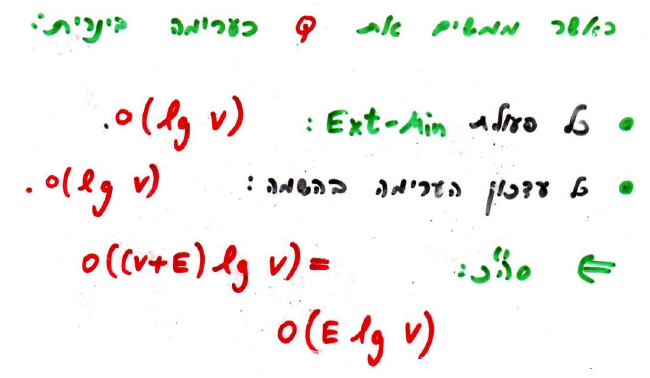 כאשר ממשים את Q כערימה בינרית:
• כל פעולת Ext-Min: O(lg V).
• כל עדכון הערימה בהשמה: O(lg V).
⇐ סה"כ: O((V+E) lg V) =
O(E lg V)